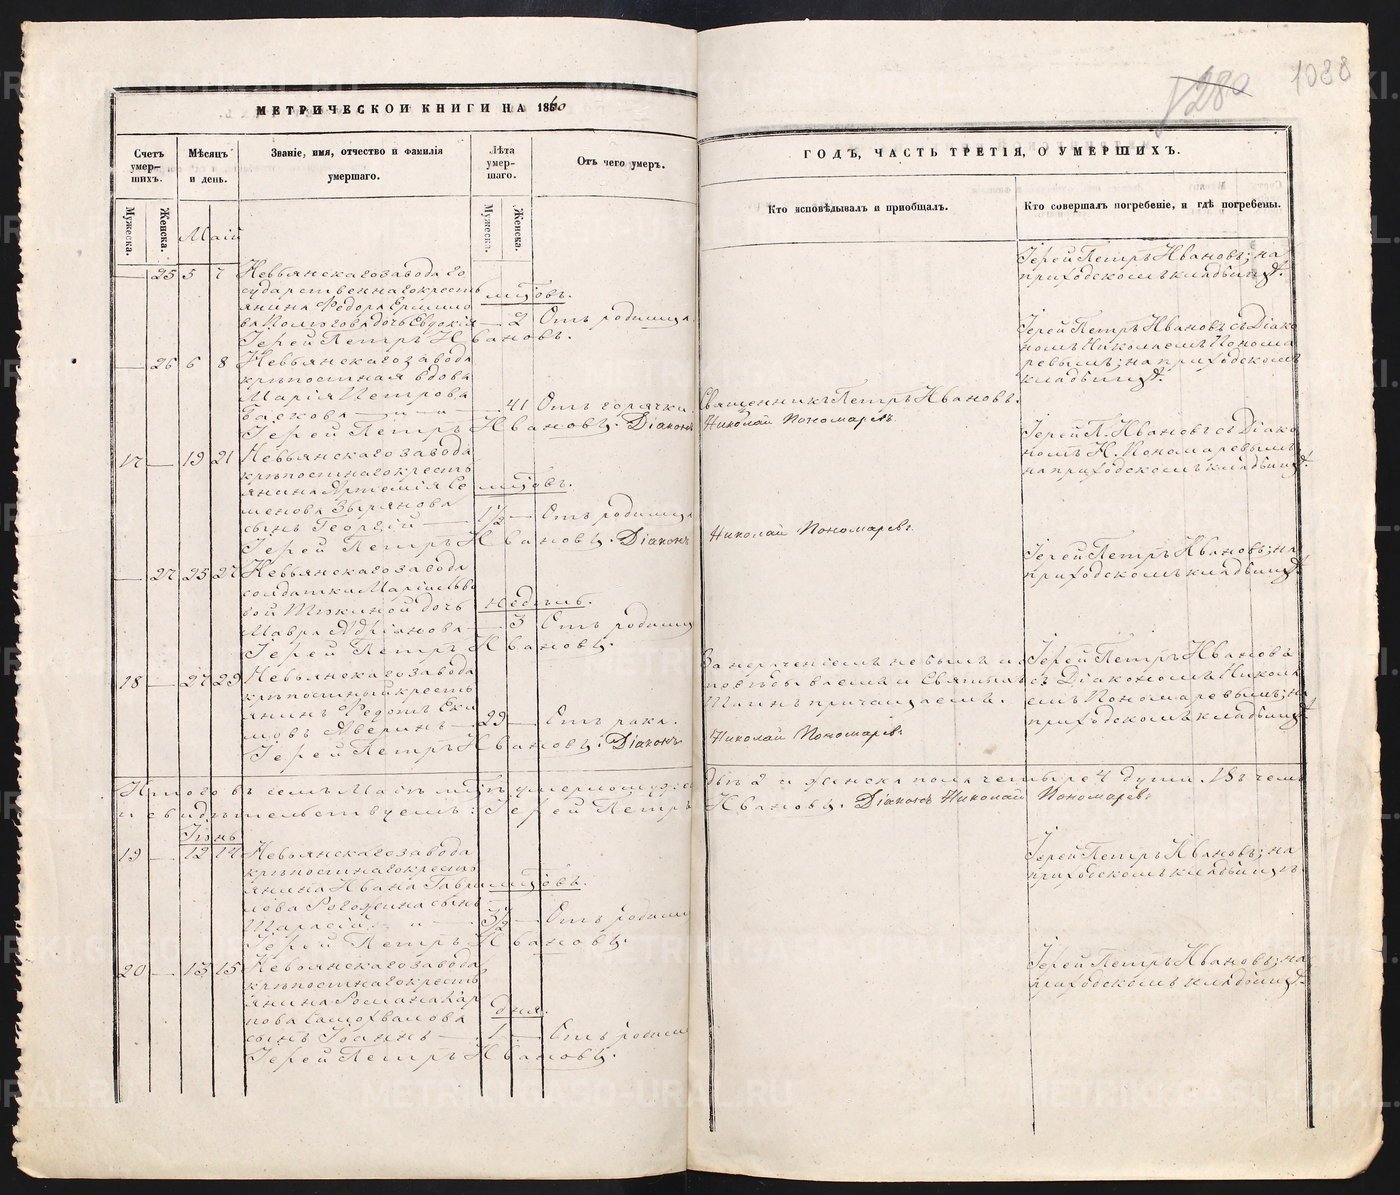 1280
1088
МЕТРИЧЕСКОЙ КНИГИ НА 1860
ГОДЪ, ЧАСТЬ ТРЕТІЯ, О УМЕРШИХЪ.
Счетъ умер-шихъ.
Мужеска.
Женска.
Мѣсяцъ и день.
Званіе, имя, отчество и фамилія умершаго.
Лѣта умер-шаго.
Мужеска.
Женска.
Отъ чего умеръ.
Кто исповѣдывалъ и пріобщалъ.
Кто совершалъ погребеніе, и гдѣ погребены.
Маій
25 5 7 Невьянскаго завода го
сударственнаго крестъ
янина Федора Ермило
ва дочь Евдокія
мцовъ.
2 Отъ родимца
Іерей Петръ Ивановъ.
Іерей Петръ Ивановъ; на
приходскомъ кладбищѣ.
26 6 8 Невьянскаго завода
крѣпостная вдова
Марія Петрова
41 Отъ горячки
Іерей Петръ Ивановъ. Діаконъ
Священникъ Петръ Ивановъ.
Николай Пономаревъ
Іерей Петръ Ивановъ съ Діако
номъ Николаемъ Понома
ревымъ; на приходскомъ
кладбищѣ.
17 19 21 Невьянскаго завода
крѣпостнаго кресть
янина Артемія Се
менова Зырянова
сынъ Георгій
мцовъ.
1½ Отъ родимца
Іерей Петръ Ивановъ. Діаконъ
Николай Пономаревъ
Іерей П. Ивановъ съ Діако
номъ Н. Пономаревымъ;
на приходскомъ кладбищѣ.
27 25 27 Невьянскаго завода
солдатки Маріи Льво
вой дочь
Мавра Адріанова
недѣль.
3 Отъ родимца
Іерей Петръ Ивановъ.
Іерей Петръ Ивановъ; на
приходскомъ кладбищѣ.
18 27 29 Невьянскаго завода
крѣпостный кресть
янинъ Федотъ Еки
мовъ Аверинъ
29 Отъ рака.
Іерей Петръ Ивановъ. Діаконъ
За нераченіемъ не былъ и
исповѣдываемъ и Святыхъ
Таинъ причащаемъ.
Николай Пономаревъ
Іерей Петръ Ивановъ
съ Діакономъ Никола
емъ Пономаревымъ; на
приходскомъ кладбищѣ
Итого въ семъ Маѣ мцѣ умершо мужес
ка 2 и женска пола четыре 4 души. Въ чемъ
и свидѣтельствуемъ: Іерей Петръ
Ивановъ. Діаконъ Николай Пономаревъ
Іюнь
19 12 14 Невьянскаго завода
крѣпостнаго кресть
янина Ивана Гаври
лова Рогожина сынъ
мцовъ.
3½ Отъ родимца
Іерей Петръ Ивановъ.
Іерей Петръ Ивановъ; на
приходскомъ кладбищѣ
20 13 15 Невьянскаго завода
крѣпостнаго кресть
янина Романа Кар
пова Самохвалова
сынъ Іоаннъ
дня.
1 Отъ родимца
Іерей Петръ Ивановъ.
Іерей Петръ Ивановъ; на
приходскомъ кладбищѣ.
METRIKI.GASO-URAL.RU